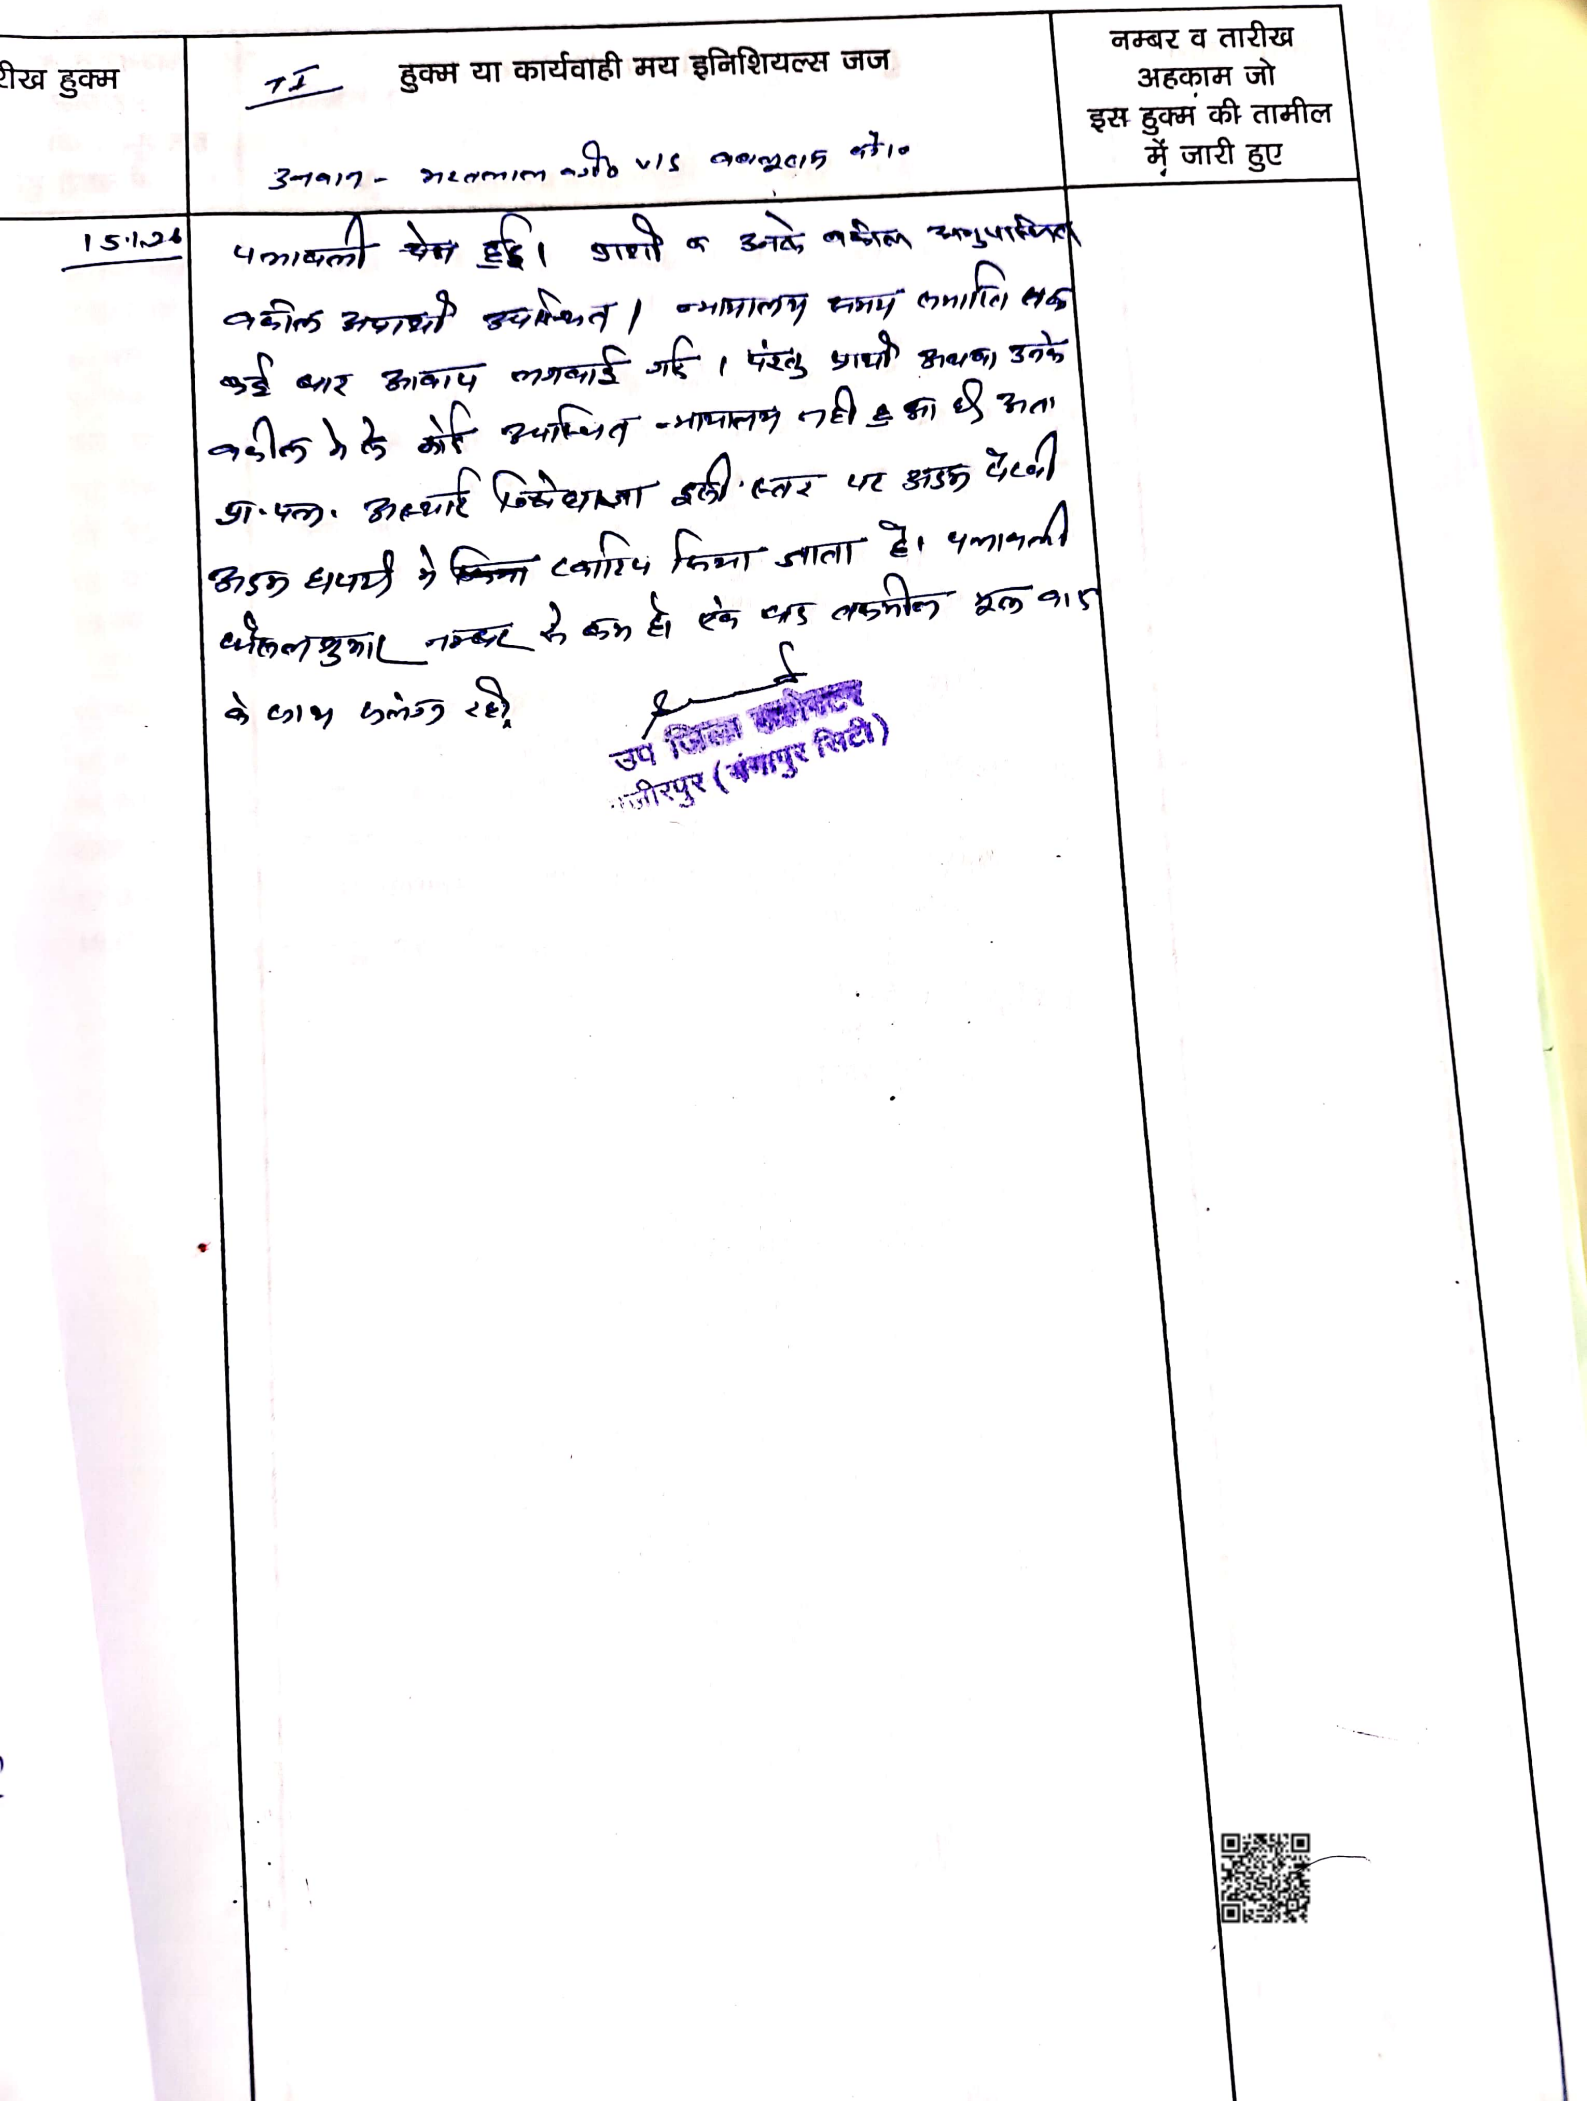 रीख हुक्म
TI हुक्म या कार्यवाही मय इनिशियल्स जज
नम्बर व तारीख
अहकाम जो
इस हुक्म की तामील
में जारी हुए
उनवान - भरतलाल v/s
15.1.26
पत्रावली पेश हुई। प्रार्थी व उनके वकील अनुपस्थित
वकील अप्रार्थी उपस्थित। न्यायालय समय समाप्ति तक
कई बार आवाज लगवाई गई। परंतु प्रार्थी अथवा उनके
वकील मे से कोई उपस्थित न्यायालय नही हुआ है अतः
प्रा. पत्र. अस्थाई निषेधाज्ञा इसी स्तर पर अदम पैरवी
अदम में खारिज किया जाता है। पत्रावली
फैसलशुमार नम्बर से कम हो एवं बाद तकमील मूल वाद
के साथ संलग्न रहे।
उप जिला कलेक्टर
वजीरपुर (गंगापुर सिटी)